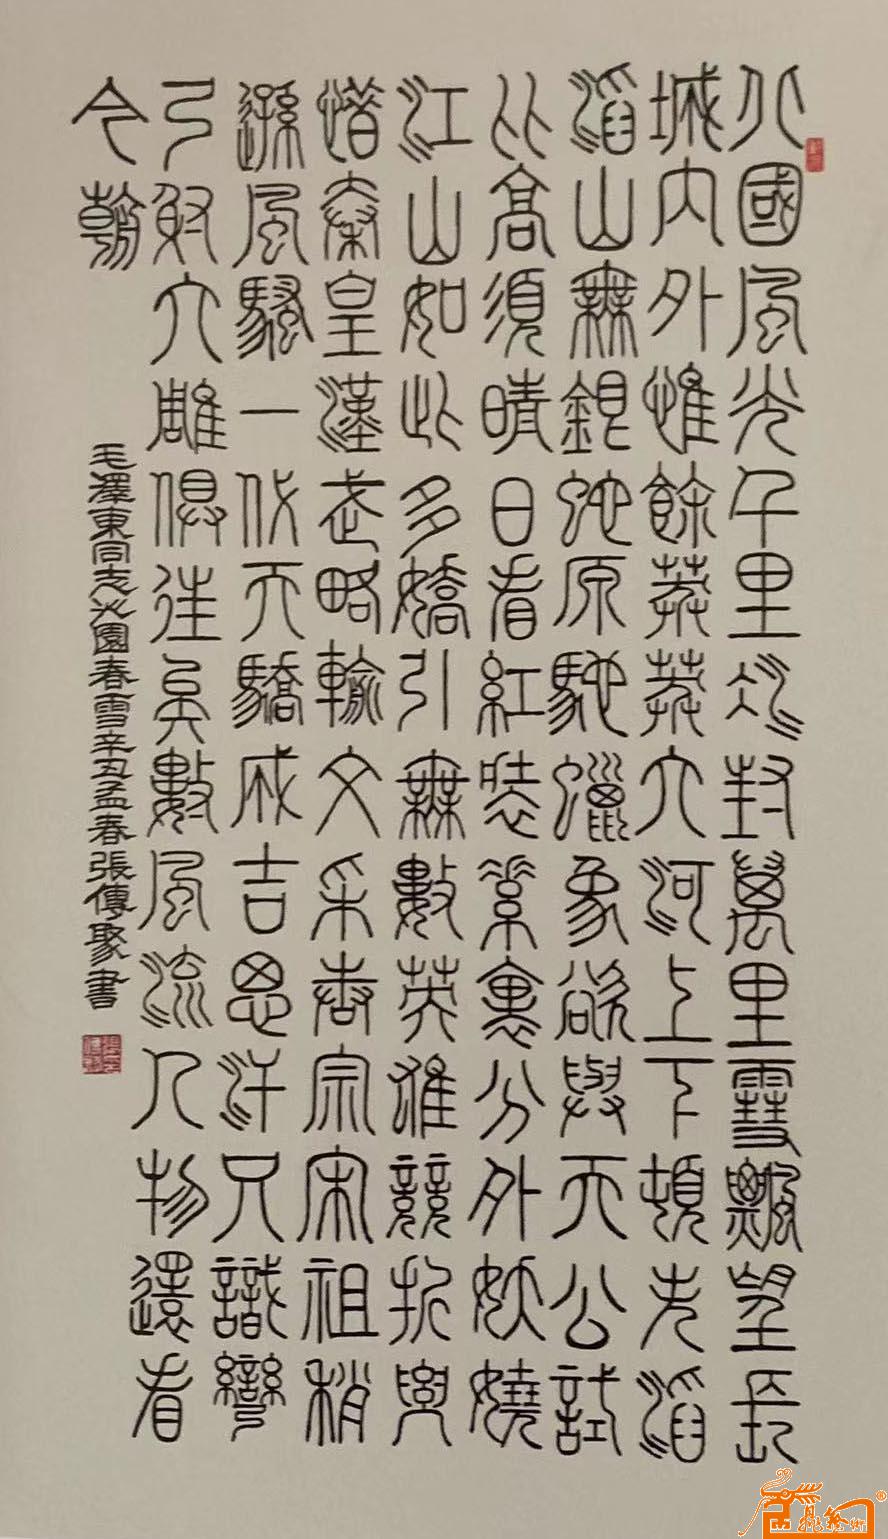 北國風光千里冰封萬里雪飄望長
城内外惟餘莽莽大河上下頓失滔
滔山舞銀蛇原馳蠟象欲與天公試
比高須晴日看紅裝素裹分外妖嬈
江山如此多嬌引無數英雄競折腰
惜秦皇漢武略輸文采唐宗宋祖稍
遜風騷一代天驕成吉思汗只識彎
弓射大雕俱往矣數風流人物還看
今朝
毛澤東同志沁園春雪辛丑孟春張傳聚書